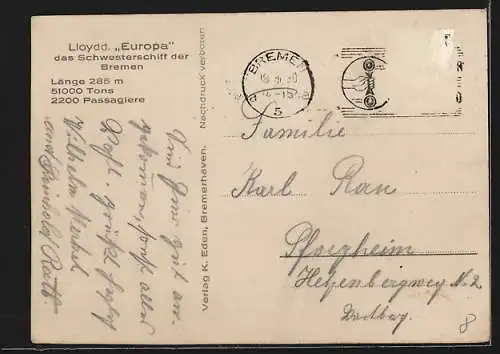 Lloydd. „Europa"
das Schwesterschiff der
Bremen
Länge 285 m
51000 Tons
2200 Passagiere
Nachdruck verboten
Verlag K. Eden, Bremerhaven.
BREMEN
5
Sind hier gut an-
gekommen, sonst alles
grüßt
Wilhelm Merkel
und Reinhold Rath
Familie
Karl Rau
Pforzheim
Heyenbergweg N. 2
8